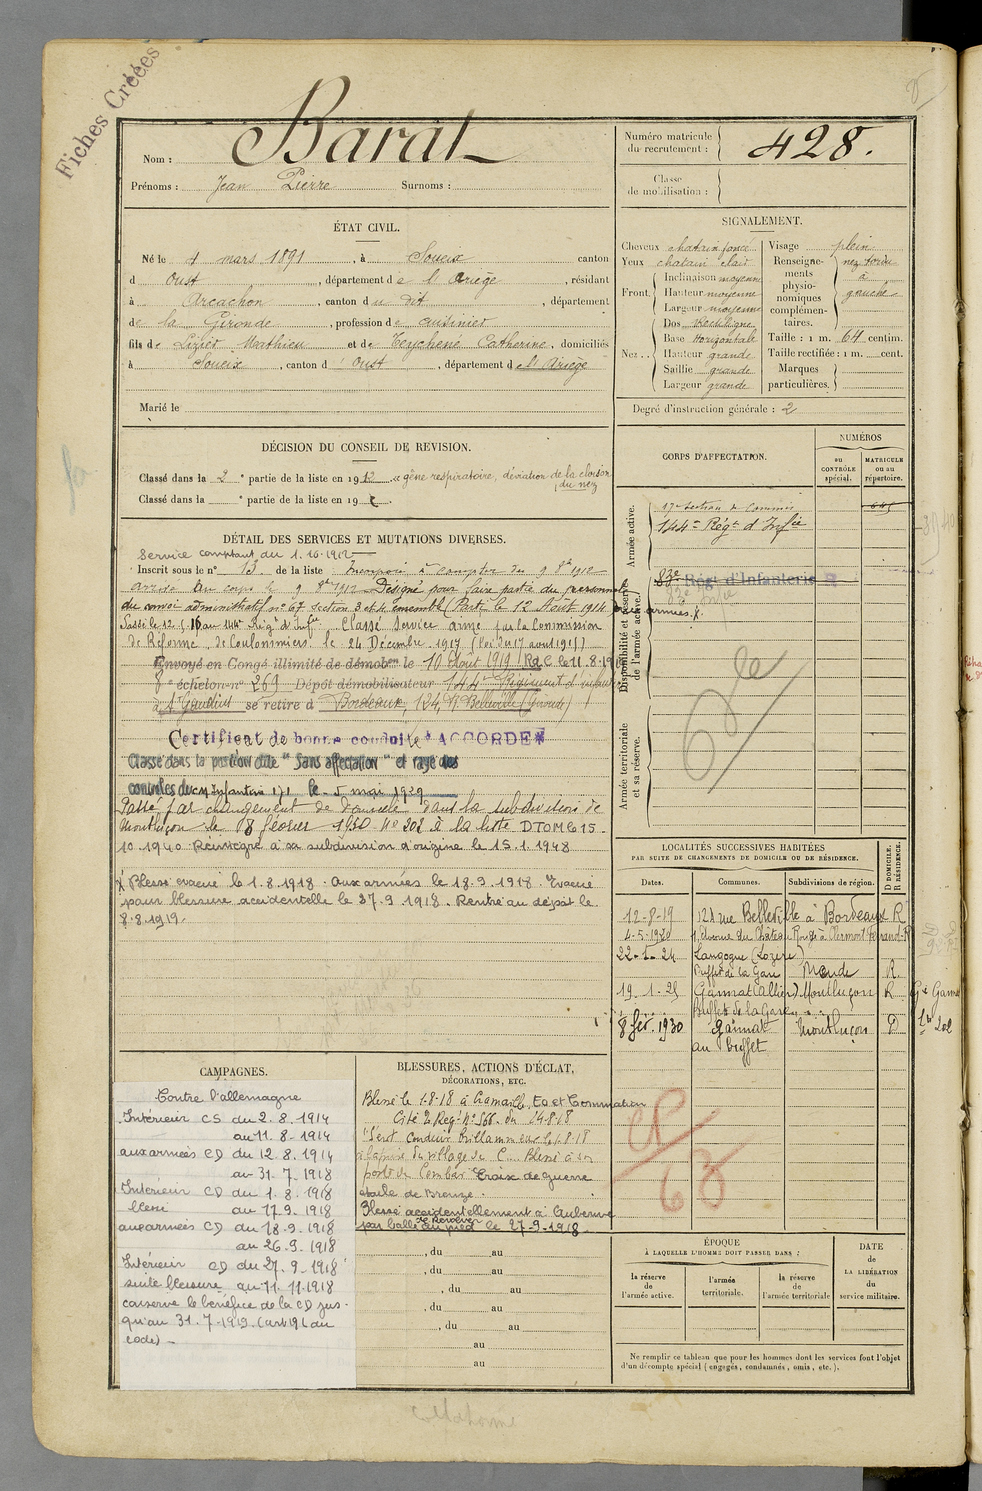 Fiches Créées
Nom : Barat
Prénoms : Jean Pierre Surnoms :
Numéro matricule du recrutement : 428.
Classe de mobilisation :
ÉTAT CIVIL.
Né le 4 mars 1891, à Soueix canton
d Oust, département de l'Ariège, résidant
à Arcachon, canton du dit, département
de la Gironde, profession de cuisinier
fils de Lizier Mathieu et de Teychené Catherine, domiciliés
à Soueix, canton d'Oust, département de l'Ariège
Marié le
SIGNALEMENT.
Cheveux chatain foncé
Yeux chatain clair
Front. Inclinaison moyenne
Hauteur moyenne
Largeur moyenne
Nez. Dos Rectiligne
Base Horizontale
Hauteur grande
Saillie grande
Largeur grande
Visage plein
Renseignements physionomiques complémentaires. nez tordu à gauche
Taille : 1 m. 64 centim.
Taille rectifiée : 1 m. cent.
Marques particulières.
Degré d'instruction générale : 2
DÉCISION DU CONSEIL DE REVISION.
Classé dans la 2e partie de la liste en 1912 gêne respiratoire, déviation de la cloison
du nez
Classé dans la e partie de la liste en 19
DÉTAIL DES SERVICES ET MUTATIONS DIVERSES.
Service comptant du 1.10.1912
Inscrit sous le n° 13 de la liste Incorporé à compter du 9 8bre 1912
arrivé au corps le 9 8bre 1912 Désigné pour faire partie du personnel
du convoi administratif n° 67 section 3 et 4 Parti le 12 Août 1914 aux armées.
Passé le 12.5.16 au 144e Rég. d'Infie Classé Service armé par la Commission
de Réforme de Coulommiers le 24 Décembre 1917 (loi du 17 aout 1915)
Envoyé en Congé illimité de démobon le 10 Aout 1919
8e échelon n° 269 Dépôt démobilisateur 144e Régiment d'infanterie
à St Gaudens se retire à Bordeaux, 124, R. Belleville (Gironde)
Certificat de bonne conduite ACCORDÉ
Classé dans la position dite "Sans affectation" et rayé des
contrôles du CM Infanterie 171 le 5 mai 1929
Passé par changement de domicile dans la subdivision de
Montluçon le 8 février 1930 N° 202 à la liste DTOM le 15.
10.1940 Réintégré à sa subdivision d'origine le 15.1.1948
Blessé évacué le 1.8.1918. aux armées le 18.9.1918. Evacué
pour blessure accidentelle le 27.9.1918. Rentré au dépôt le
8.8.1919.
CORPS D'AFFECTATION.
NUMÉROS
au CONTRÔLE spécial.
MATRICULE ou au répertoire.
Armée active.
17e Section de Commis
144e Régt d'Infie
Disponibilité et réserve de l'armée active.
83e Rég. d'Infanterie
Armée territoriale et sa réserve.
LOCALITÉS SUCCESSIVES HABITÉES
PAR SUITE DE CHANGEMENTS DE DOMICILE OU DE RÉSIDENCE.
Dates. Communes. Subdivisions de région. D DOMICILE. R RÉSIDENCE.
12-8-19 124 rue Belleville à Bordeaux R
4-5-1920 1, Avenue du Château Rouge à Clermont Ferrand R
22-5-24 Langogne (Lozère)
Buffet de la Gare Mende R.
19-1-25 Gannat (Allier) Montluçon R
Buffet de la Gare
8 fév. 1930 Gannat Montluçon D
au Buffet
CAMPAGNES.
Contre l'allemagne
Intérieur CS du 2.8.1914
au 11.8.1914
aux armées CD du 12.8.1914
au 31.7.1918
Intérieur CD du 1.8.1918
blessé au 17.9.1918
aux armées CD du 18.9.1918
au 26.9.1918
Intérieur CD du 27.9.1918
suite blessure au 11.11.1918
conserve le bénéfice de la CD jus-
qu'au 31.7.1919 (art 196 du
code)
BLESSURES, ACTIONS D'ÉCLAT,
DÉCORATIONS, ETC.
Blessé le 1-8-18 à Cramaille, Eo et Commotion
Cité O. Reg. N° 566 du 14-8-18
"S'est conduit brillamment le 1.8.18
à la prise du village de C... Blessé à son
poste de Combat" Croix de guerre
étoile de Bronze.
Blessé accidentellement à Auberive
par balle de Revolver au pied le 27-9-1918.
, du au
, du au
, du au
, du au
, du au
au
au
CP
63
ÉPOQUE
À LAQUELLE L'HOMME DOIT PASSER DANS :
la réserve de l'armée active.
l'armée territoriale.
la réserve de l'armée territoriale
DATE de LA LIBÉRATION du service militaire.
Ne remplir ce tableau que pour les hommes dont les services font l'objet
d'un décompte spécial (engagés, condamnés, omis, etc.).